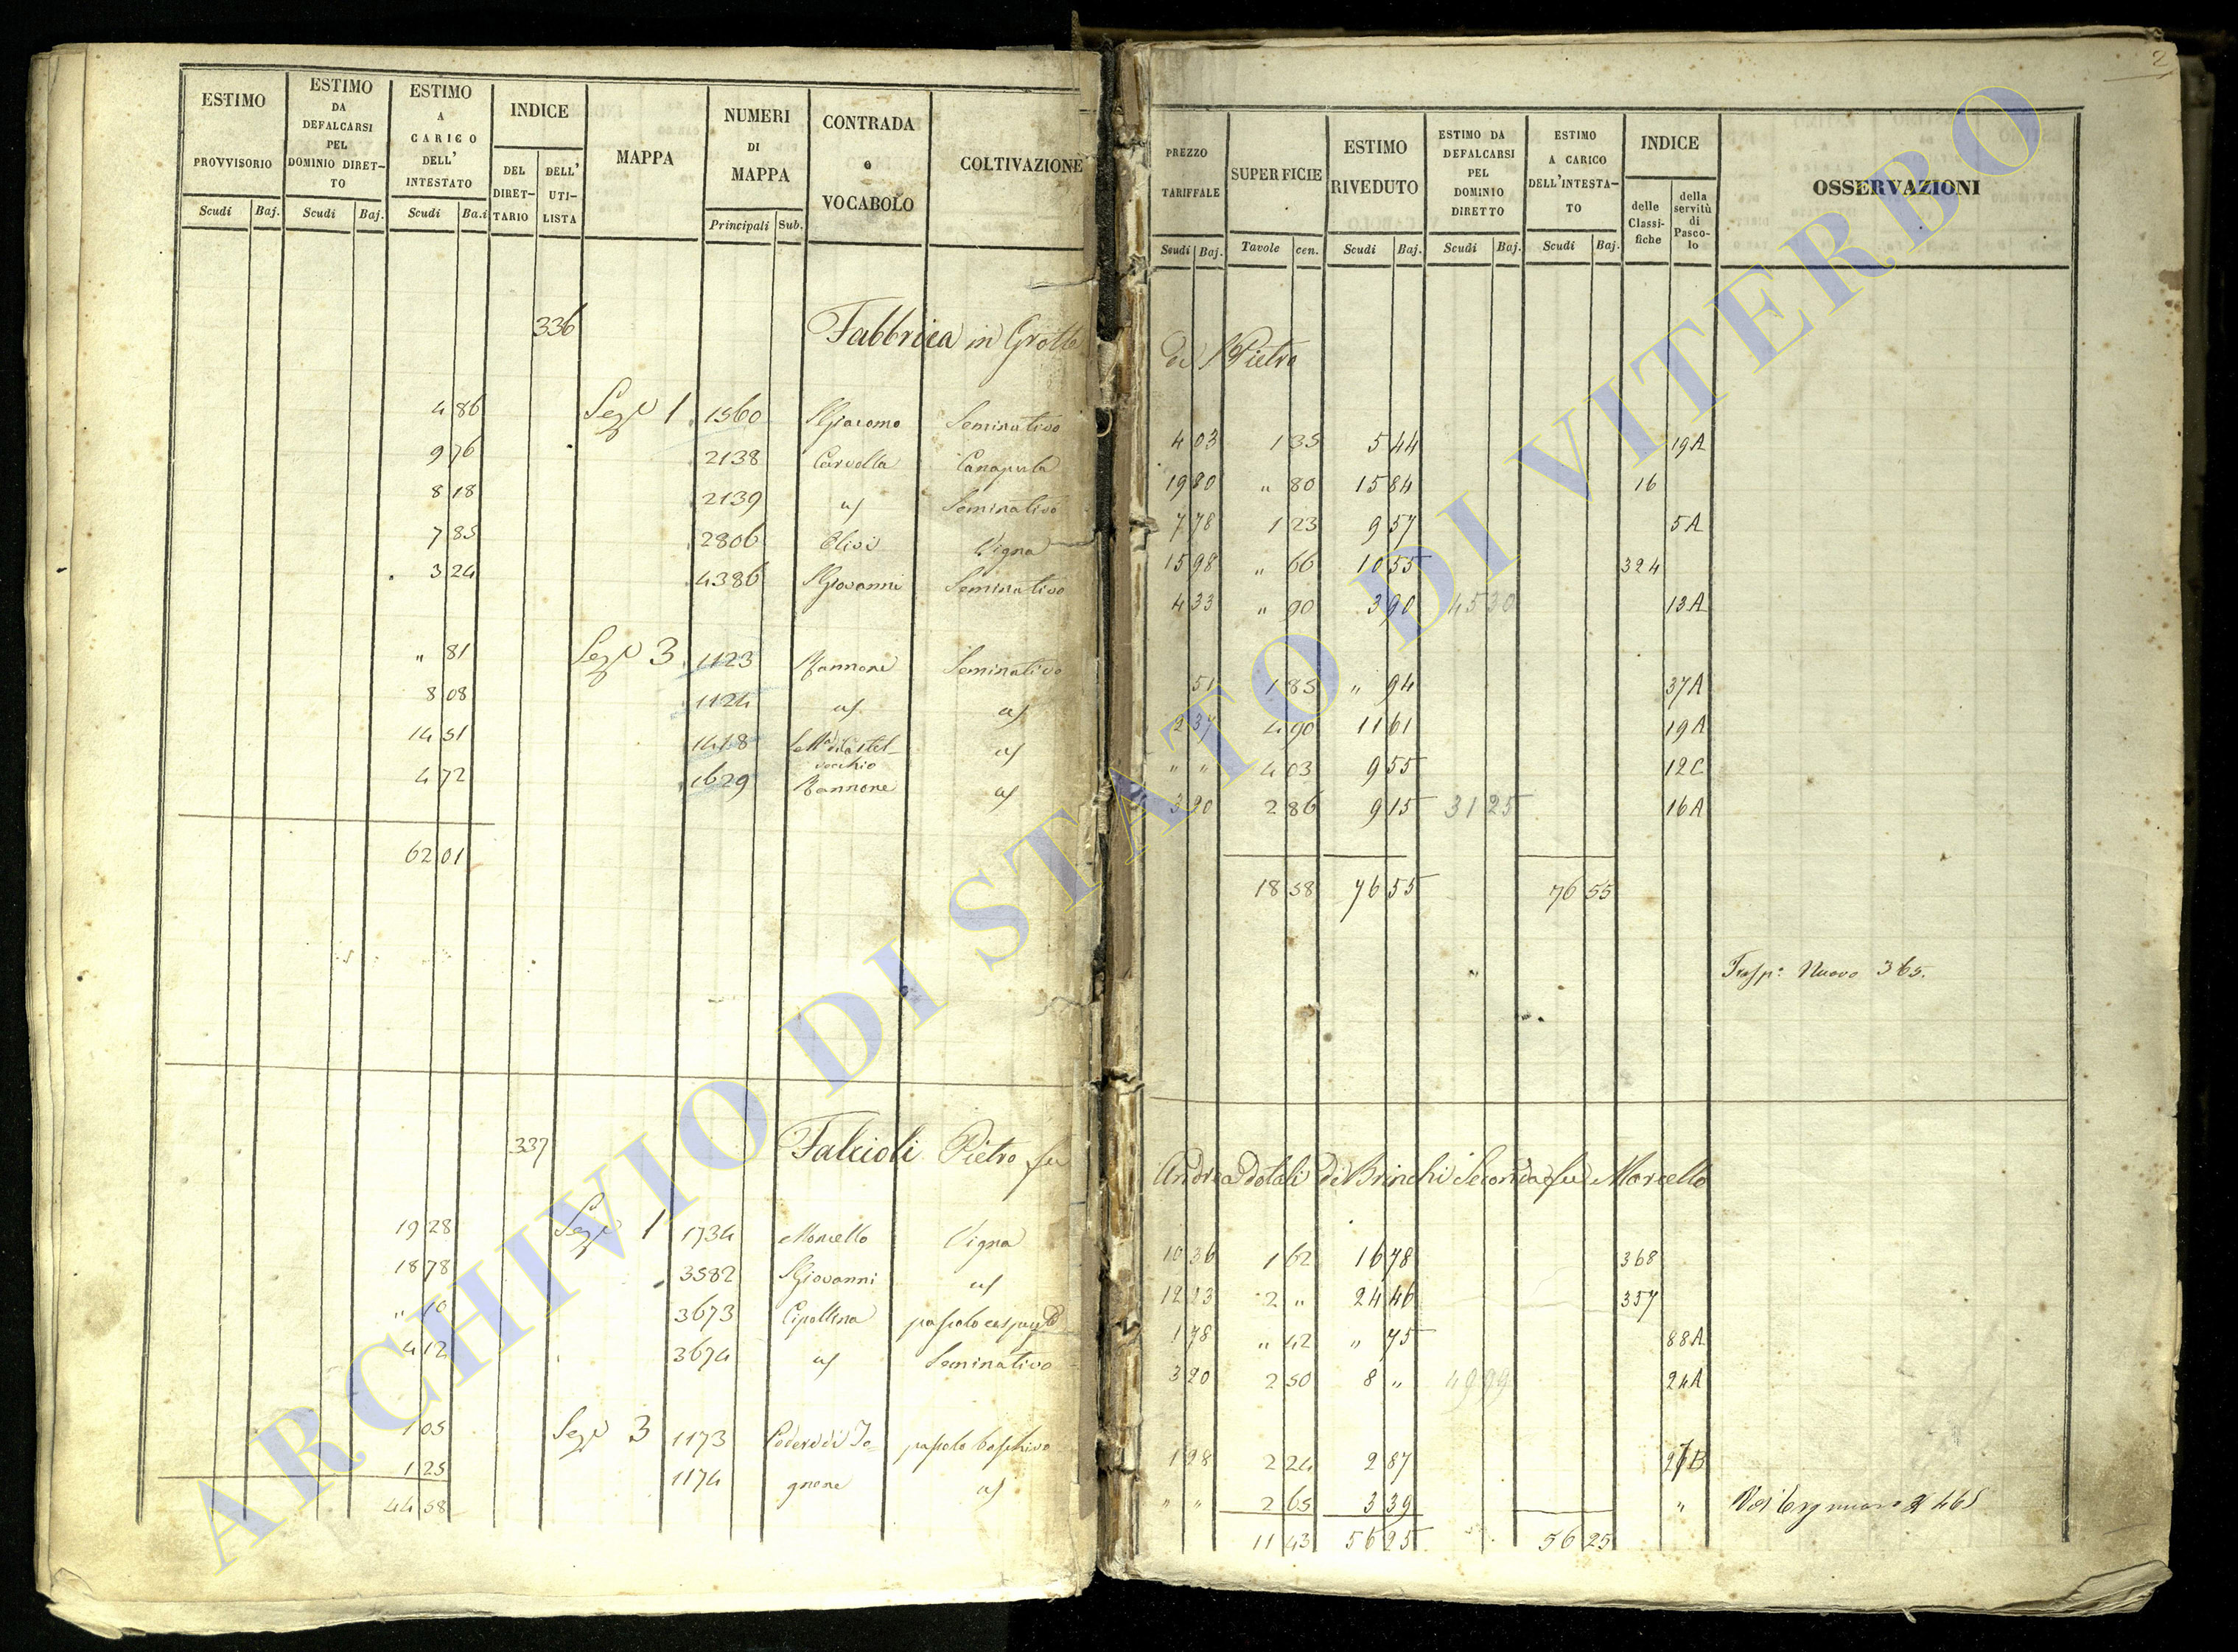 2
ESTIMO PROVVISORIO Scudi Baj.
ESTIMO DA DEFALCARSI PEL DOMINIO DIRET- TO Scudi Baj.
ESTIMO A CARICO DELL' INTESTATO Scudi Ba.i
INDICE DEL DIRET- TARIO DELL' UTI- LISTA
MAPPA
NUMERI DI MAPPA Principali Sub.
CONTRADA e VOCABOLO
COLTIVAZIONE
PREZZO TARIFFALE Scudi Baj.
SUPERFICIE Tavole cen.
ESTIMO RIVEDUTO Scudi Baj.
ESTIMO DA DEFALCARSI PEL DOMINIO DIRETTO Scudi Baj.
ESTIMO A CARICO DELL'INTESTA- TO Scudi Baj.
INDICE delle Classi- fiche della servitù di Pasco- lo
OSSERVAZIONI
336 Fabbrica in Grotte di S Pietro
4 86 Sez. 1 1560 S Giacomo Seminativo 4 03 1 35 5 44 19A
9 76 2138 Carvella Canapula 19 80 " 80 15 84 16
8 18 2139 " Seminativo 7 78 1 23 9 57 5A
7 85 2806 Vigna 15 98 " 66 10 55 324
3 24 4386 S Giovanni Seminativo 4 33 " 90 3 90 45 30 13A
" 81 Sez. 3 1123 Rannone Seminativo 51 1 85 " 94 37A
8 08 1124 2 37 4 90 11 61 19A
14 51 1418 Castel vecchio " " 4 03 9 55 12C
4 72 1629 Rannone 3 20 2 86 9 15 31 25 16A
62 01 18 58 76 55 76 55
Trasp: Nuovo 365.
337 Falcioli Pietro fu Andrea dotali di Brinchi Seconda fu Marcello
19 28 Sez. 1 1734 Marcello Vigna 10 36 1 62 16 78 368
18 78 3582 S Giovanni 12 23 2 " 24 46 357
" 10 3673 Cipollina pascolo cespug 1 78 " 42 " 75 88A
4 12 3674 Seminativo 3 20 2 50 8 " 49 99 24A
1 05 Sez. 3 1173 pascolo boschivo 1 28 2 24 2 87 27B
1 25 1174 gnene " " 2 65 3 39 " 465
44 58 11 43 56 25 56 25
ARCHIVIO DI STATO DI VITERBO